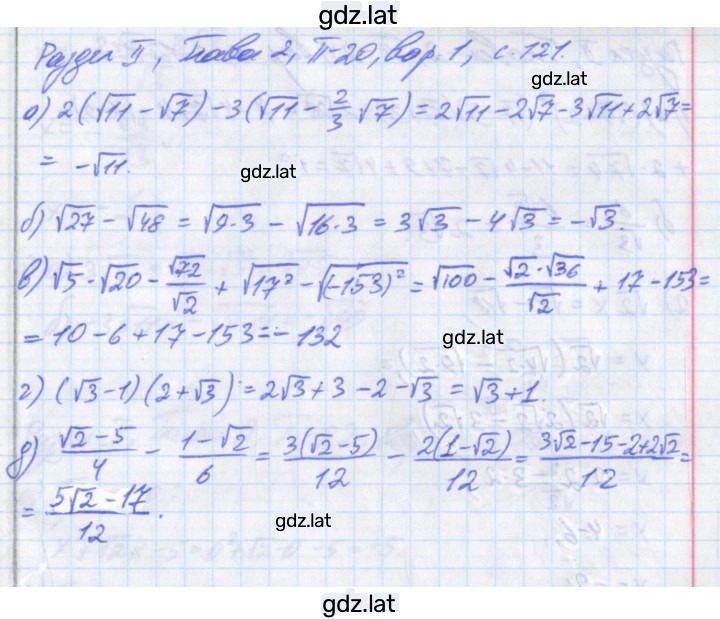 gdz.lat
Раздел II, Глава 2, П-20, вар. 1, с. 121.
gdz.lat
а) 2(√11 - √7) - 3(√11 - 2/3 √7) = 2√11 - 2√7 - 3√11 + 2√7 =
= -√11.
gdz.lat
б) √27 - √48 = √(9·3) - √(16·3) = 3√3 - 4√3 = -√3.
в) √5 · √20 - √72/√2 + √(17²) - √((-153)²) = √100 - (√2·√36)/√2 + 17 - 153 =
= 10 - 6 + 17 - 153 = -132
gdz.lat
г) (√3 - 1)(2 + √3) = 2√3 + 3 - 2 - √3 = √3 + 1.
д) (√2 - 5)/4 - (1 - √2)/6 = 3(√2 - 5)/12 - 2(1 - √2)/12 = (3√2 - 15 - 2 + 2√2)/12 =
= (5√2 - 17)/12.
gdz.lat
gdz.lat